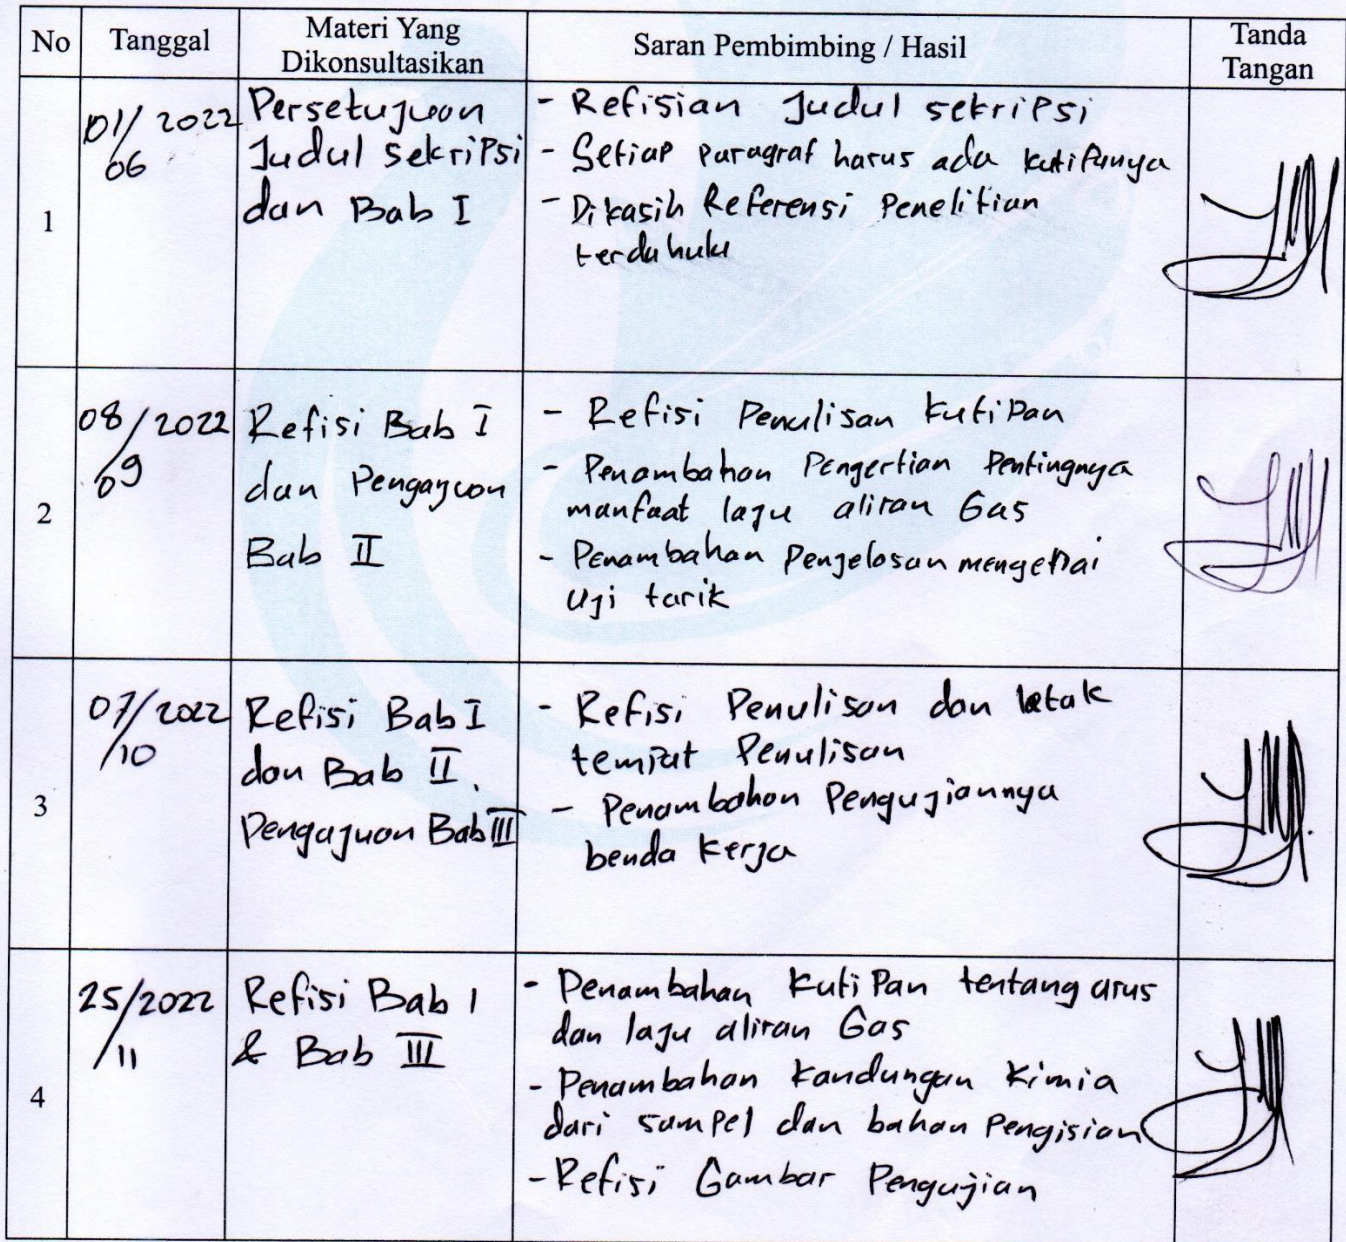 No Tanggal Materi Yang Dikonsultasikan Saran Pembimbing / Hasil Tanda Tangan
1
01/06 2022
Persetujuan
Judul sekripsi
dan Bab I
- Refisian Judul sekripsi
- Setiap paragraf harus ada kutifanya
- Dikasih Referensi Penelitian
terdahulu
2
08/09 2022
Refisi Bab I
dan Pengajuan
Bab II
- Refisi Penulisan kutipan
- Penambahan Pengertian Pentingnya
manfaat laju aliran Gas
- Penambahan Penjelasan mengenai
Uji tarik
3
07/10 2022
Refisi Bab I
dan Bab II.
Pengajuan Bab III
- Refisi Penulisan dan letak
tempat Penulisan
- Penambahan Pengujiannya
benda kerja
4
25/11 2022
Refisi Bab I
& Bab III
- Penambahan kutipan tentang arus
dan laju aliran Gas
- Penambahan kandungan kimia
dari sampel dan bahan Pengisian
- Refisi Gambar Pengujian